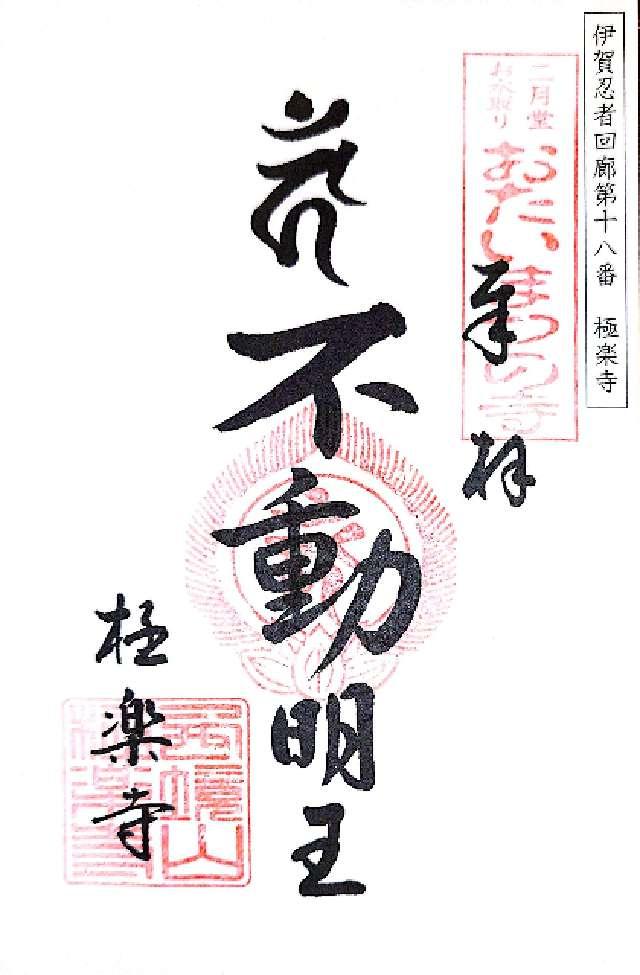 伊賀忍者回廊第十八番 極楽寺
二月堂
お水取り
おたいまつの寺
奉拝
不動明王
極楽寺